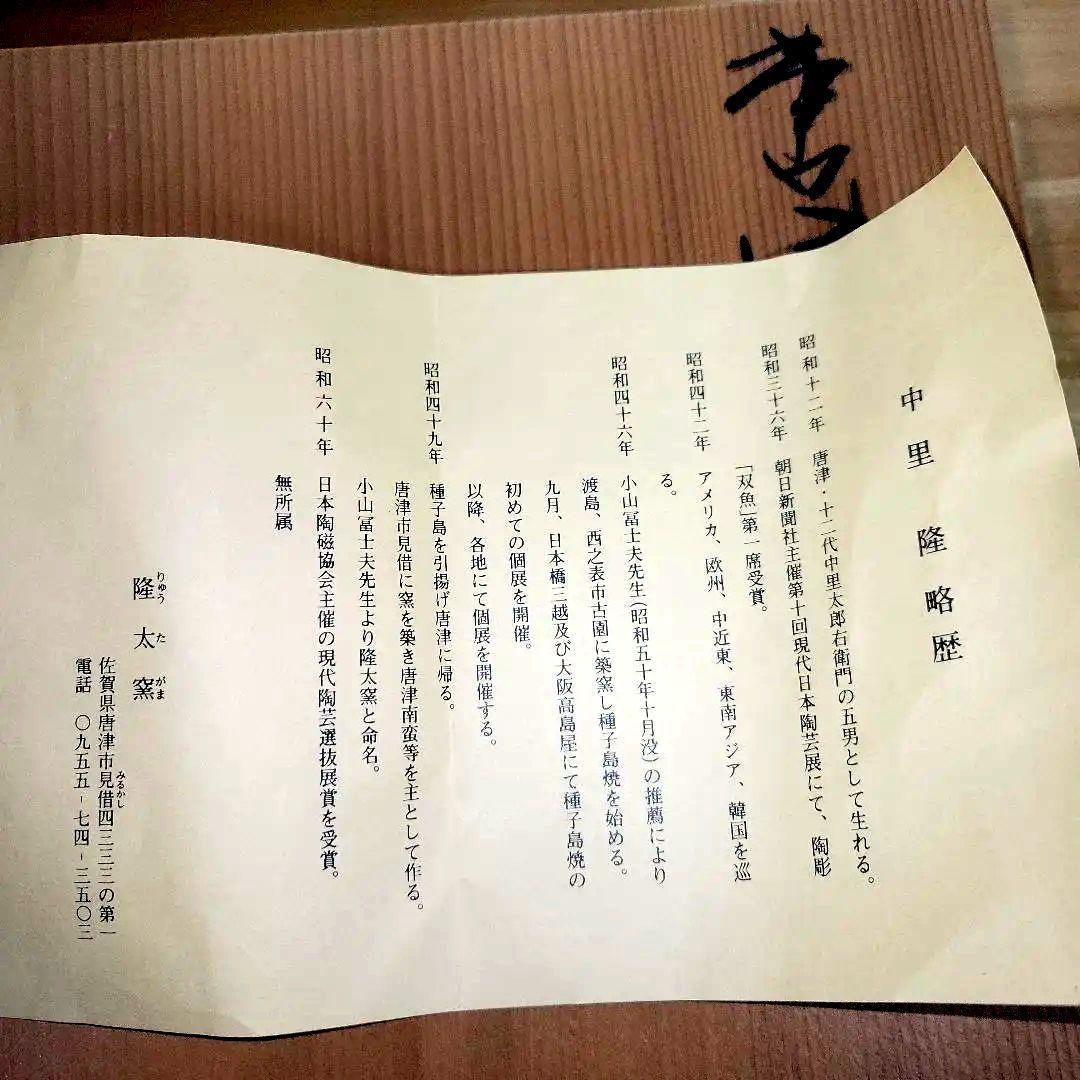 中里隆略歴
昭和十二年 唐津・十二代中里太郎右衛門の五男として生れる。
昭和三十六年 朝日新聞社主催第十回現代日本陶芸展にて、陶彫
「双魚」第一席受賞。
昭和四十二年 アメリカ、欧州、中近東、東南アジア、韓国を巡
る。
昭和四十六年 小山冨士夫先生(昭和五十年十月没)の推薦により
渡島、西之表市古園に築窯し種子島焼を始める。
九月、日本橋三越及び大阪高島屋にて種子島焼の
初めての個展を開催。
以降、各地にて個展を開催する。
昭和四十九年 種子島を引揚げ唐津に帰る。
唐津市見借に窯を築き唐津南蛮等を主として作る。
小山冨士夫先生より隆太窯と命名。
昭和六十年 日本陶磁協会主催の現代陶芸選抜展賞を受賞。
無所属
りゅうたがま
隆太窯
みるかし
佐賀県唐津市見借四三三三の第一
電話 〇九五五-七四-三五〇三